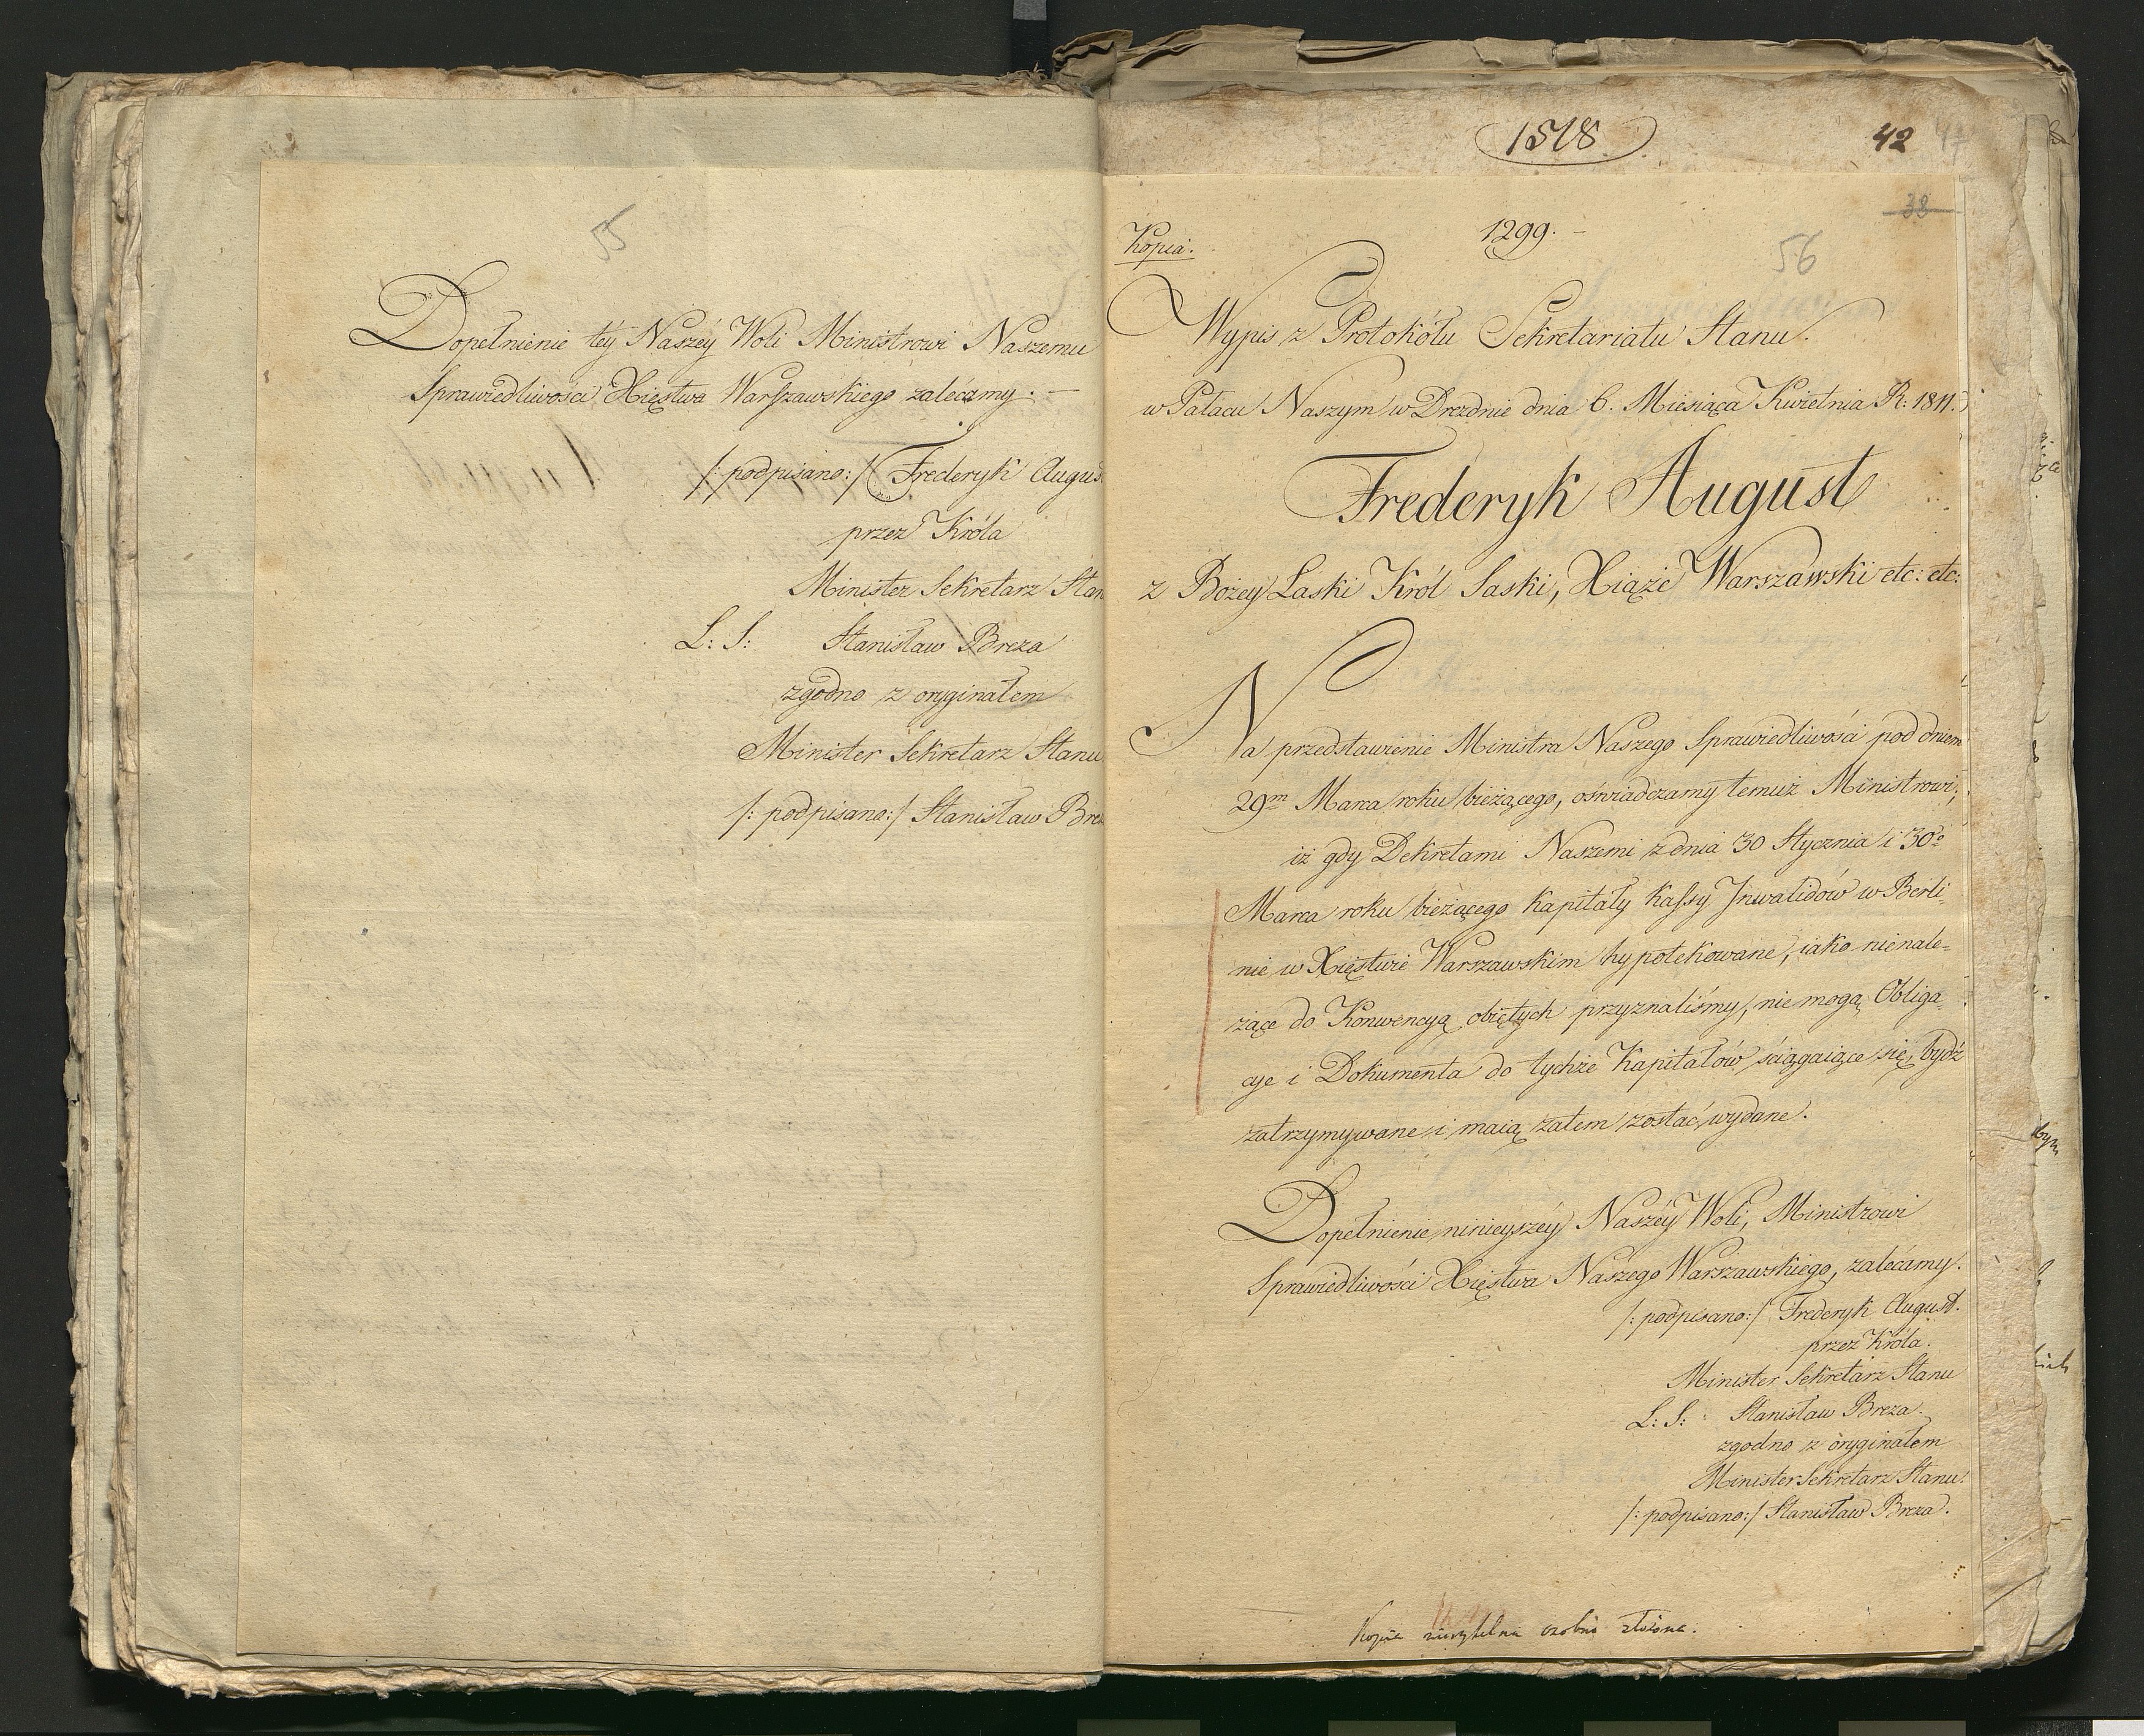 55
Dopełnienie téy Naszéy Woli Ministrowi Naszemu
Sprawiedliwości Xięstwa Warszawskiego zalécamy. —
/: podpisano:/ Frederyk Augus
przez Króla
Minister Sekretarz Stan
L: S: Stanisław Breza
zgodno z oryginałem
Minister Sekretarz Stanu
/: podpisano:/ Stanisław Brez
1518
42
38
Kopia.
1299. —
56
Wypis z Protokółu Sekretariatu Stanu.
w Pałacu Naszym w Dreznie dnia 6. Miesiąca Kwietnia R: 1811.
Frederyk August
z Bożey Łaski Król Saski, Xiąże Warszawski etc: etc:
Na przedstawienie Ministra Naszego Sprawiedliwości pod dniem
29m Marca roku bieżącego, oświadczamy temuż Ministrowi,
iż gdy Dekretami Naszemi z dnia 30 Stycznia i 30o
Marca roku bieżącego Kapitały Kassy Inwalidów w Berli-
nie w Xięstwie Warszawskim hypotekowane, iako nienale=
żące do Konwencyą obiętych przyznaliśmy, nie mogą Obliga-
cye i Dokumenta do tychże Kapitałów ściągaiące się bydź
zatrzymywane i maią zatem zostać wydane.
Dopełnienie ninieyszéy Naszéy Woli, Ministrowi
Sprawiedliwości Xięstwa Naszego Warszawskiego, zalécamy.
/: podpisano:/ Frederyk August.
przez Króla.
Minister Sekretarz Stanu
L: S: Stanisław Breza.
zgodno z oryginałem
Minister Sekretarz Stanu.
/: podpisano:/ Stanisław Breza.
Kopia osobno złożona.